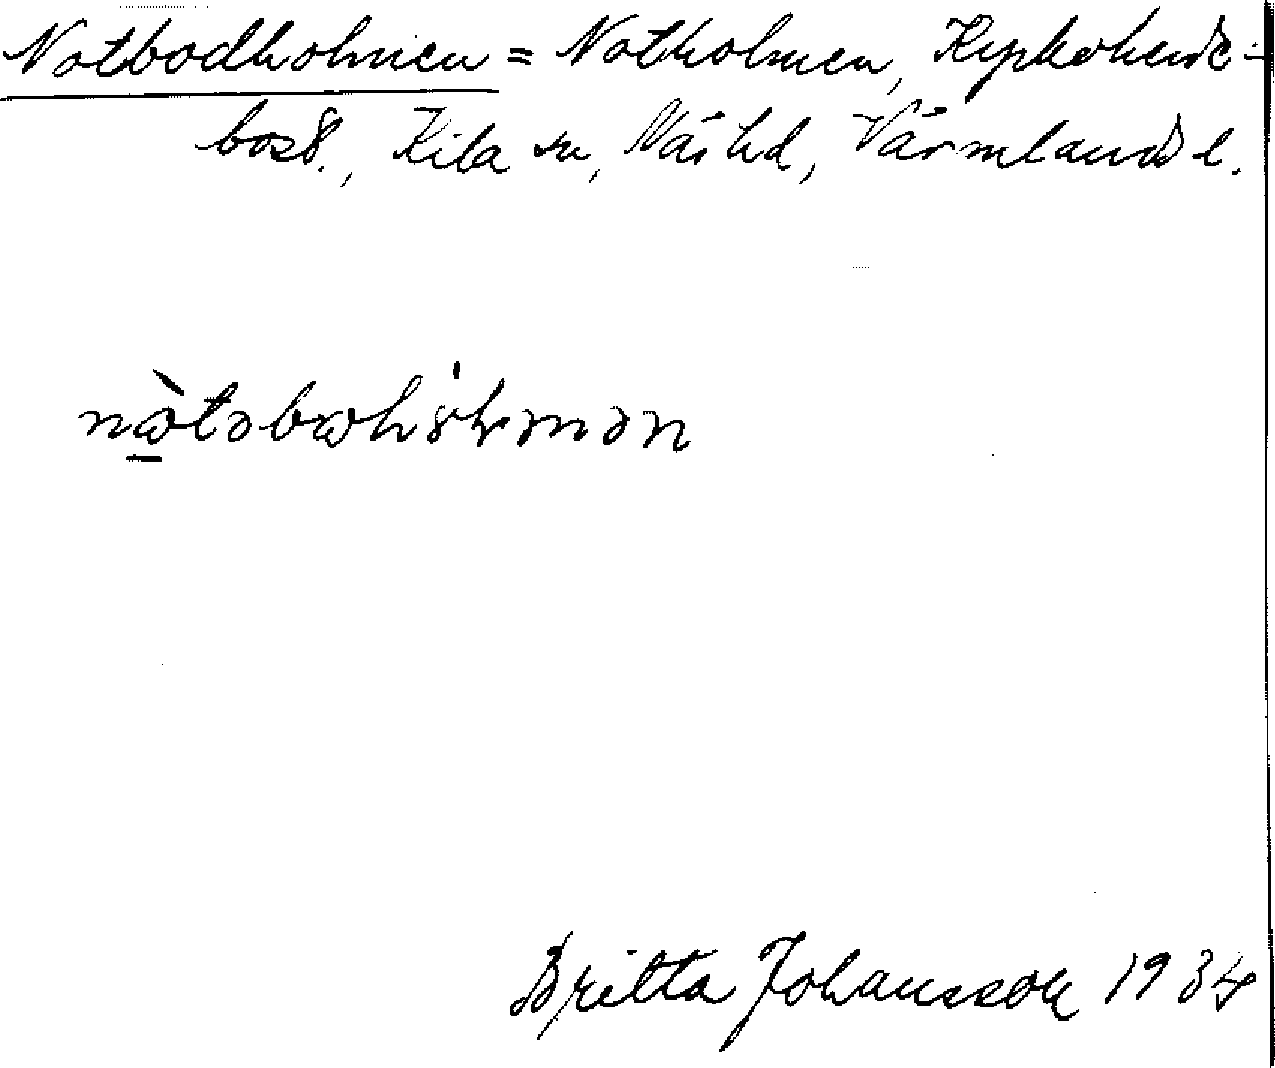 Notbodholmen = Notholmen,
Kila sn, Näs hd, Värmlands l.
Britta Johansson 1934